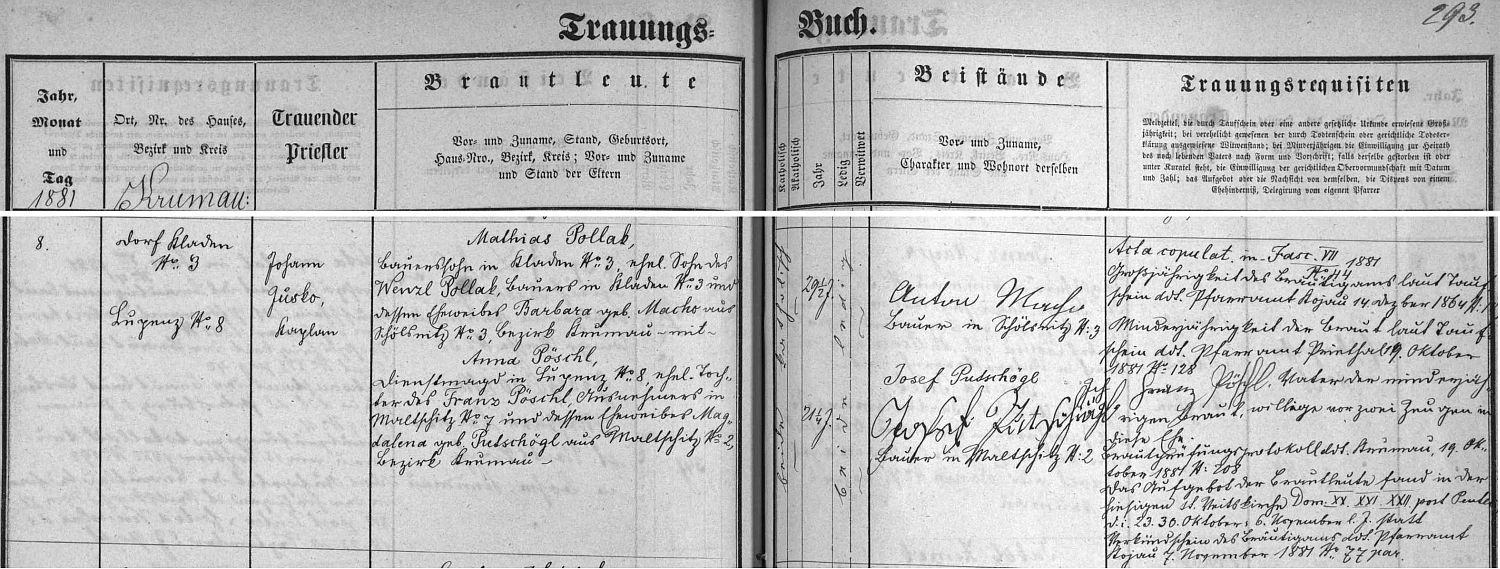 Trauungs-
Buch.
293.
Jahr,
Monat
und
Tag
1881
Ort, Nr. des Hauses,
Bezirk und Kreis
Krumau:
Trauender
Priester
Brautleute
Vor- und Zuname, Stand, Geburtsort,
Haus-Nro., Bezirk, Kreis; Vor- und Zuname
und Stand der Eltern
Katholisch
Akatholisch
Jahr
Ledig
Verwitwet
Beistände
Vor- und Zuname,
Charakter und Wohnort derselben
Trauungsrequisiten
Meldzettel, die durch Taufschein oder eine andere gesetzliche Urkunde erwiesene Groß-
jährigkeit; bei verehelicht gewesenen der durch Todtenschein oder gerichtliche Todeser-
klärung ausgewiesene Witwenstand; bei Minderjährigen die Einwilligung zur Heirath
des noch lebenden Vaters nach Form und Vorschrift; falls derselbe gestorben ist oder
unter Kuratel steht, die Einwilligung der gerichtlichen Obervormundschaft mit Datum
und Zahl; das Aufgebot oder die Nachsicht von demselben, die Dispens von einem
Ehehinderniß, Delegirung vom eigenen Pfarrer
8.
Dorf Kladen
No. 3
Lupenz No. 8
Johann
Jusko,
Kaplan
Mathias Pollak,
Bauerssohn in Kladen No. 3, ehel. Sohn des
Wenzl Pollak, Bauers in Kladen No. 3 und
dessen Eheweibes Barbara geb. Macho aus
Schölsnitz No. 3, Bezirk Krumau – mit –
Anna Pöschl,
Dienstmagd in Lupenz No. 8 ehel. Toch-
ter des Franz Pöschl, Ausnehmers in
Maltschitz No. 7 und dessen Eheweibes Mag-
dalena geb. Putschögl aus Maltschitz No. 2,
Bezirk Krumau –
beide katholisch
29 1/2 J.
21 1/4 J.
beide ledig
Anton Macho
Bauer in Schölsnitz N: 3
Josef Putschögl
Josef Putschögl
Bauer in Maltschitz N: 2
Acta copulat. in Fasc. VII 1881
No. 44
Großjährigkeit des Bräutigams laut Tauf-
schein ddt. Pfarramt Stojau 14. Dezber 1864
Minderjährigkeit der Braut laut Tauf-
schein ddt. Pfarramt Priethal 19. Oktober
1881 No. 128
Ich Franz Pöschl, Vater der minderjäh-
rigen Braut, willige vor zwei Zeugen in
diese Ehe.
Brautprüfungsprotokoll ddt. Krumau, 19. Ok-
tober 1881 N: 208
Das Aufgebot der Brautleute fand in der
hiesigen St. Veitskirche Dom. XX. XXI. XXII. post Pentec.
d. i. 23. 30. Oktober, 6. November l. J. statt
Verkündschein des Bräutigams ddt. Pfarramt
Stojau 7. November 1881 No. 77 par.